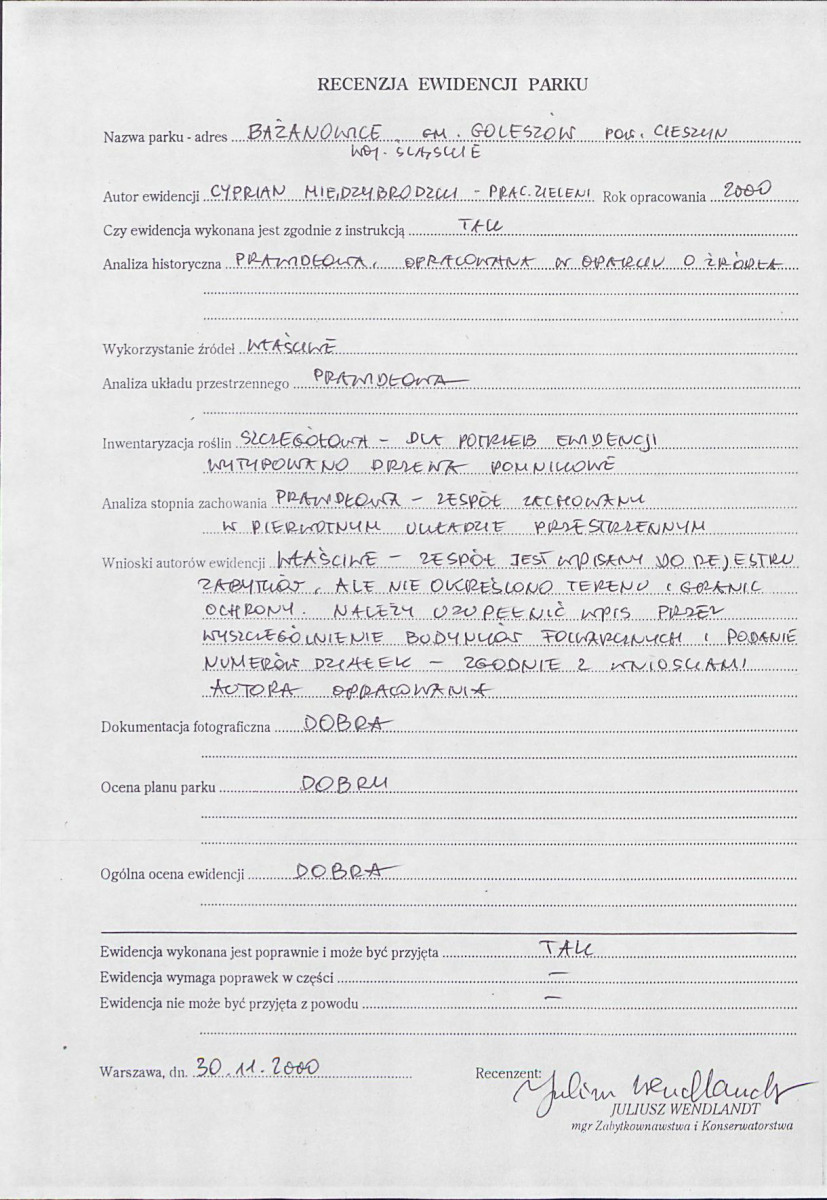 RECENZJA EWIDENCJI PARKU
Nazwa parku - adres BAŻANOWICE GM. GOLESZÓW POW. CIESZYN
WOJ. ŚLĄSKIE
Autor ewidencji CYPRIAN MIĘDZYBRODZKI - PRAC. ZIELENI Rok opracowania 2000
Czy ewidencja wykonana jest zgodnie z instrukcją TAK
Analiza historyczna PRAWIDŁOWA, OPRACOWANA W OPARCIU O ŹRÓDŁA
Wykorzystanie źródeł WŁAŚCIWE
Analiza układu przestrzennego PRAWIDŁOWA
Inwentaryzacja roślin SZCZEGÓŁOWA - DLA POTRZEB EWIDENCJI
WYTYPOWANO DRZEWA POMNIKOWE
Analiza stopnia zachowania PRAWIDŁOWA - ZESPÓŁ ZACHOWANY
W PIERWOTNYM UKŁADZIE PRZESTRZENNYM
Wnioski autorów ewidencji WŁAŚCIWE - ZESPÓŁ JEST WPISANY DO REJESTRU
ZABYTKÓW, ALE NIE OKREŚLONO TERENU I GRANIC
OCHRONY. NALEŻY UZUPEŁNIĆ WPIS PRZEZ
WYSZCZEGÓLNIENIE BUDYNKÓW FOLWARCZNYCH I PODANIE
NUMERÓW DZIAŁEK - ZGODNIE Z WNIOSKAMI
AUTORA OPRACOWANIA
Dokumentacja fotograficzna DOBRA
Ocena planu parku DOBRY
Ogólna ocena ewidencji DOBRA
Ewidencja wykonana jest poprawnie i może być przyjęta TAK
Ewidencja wymaga poprawek w części —
Ewidencja nie może być przyjęta z powodu —
Warszawa, dn. 30.11.2000 Recenzent:
Juliusz Wendlandt
JULIUSZ WENDLANDT
mgr Zabytkownawstwa i Konserwatorstwa